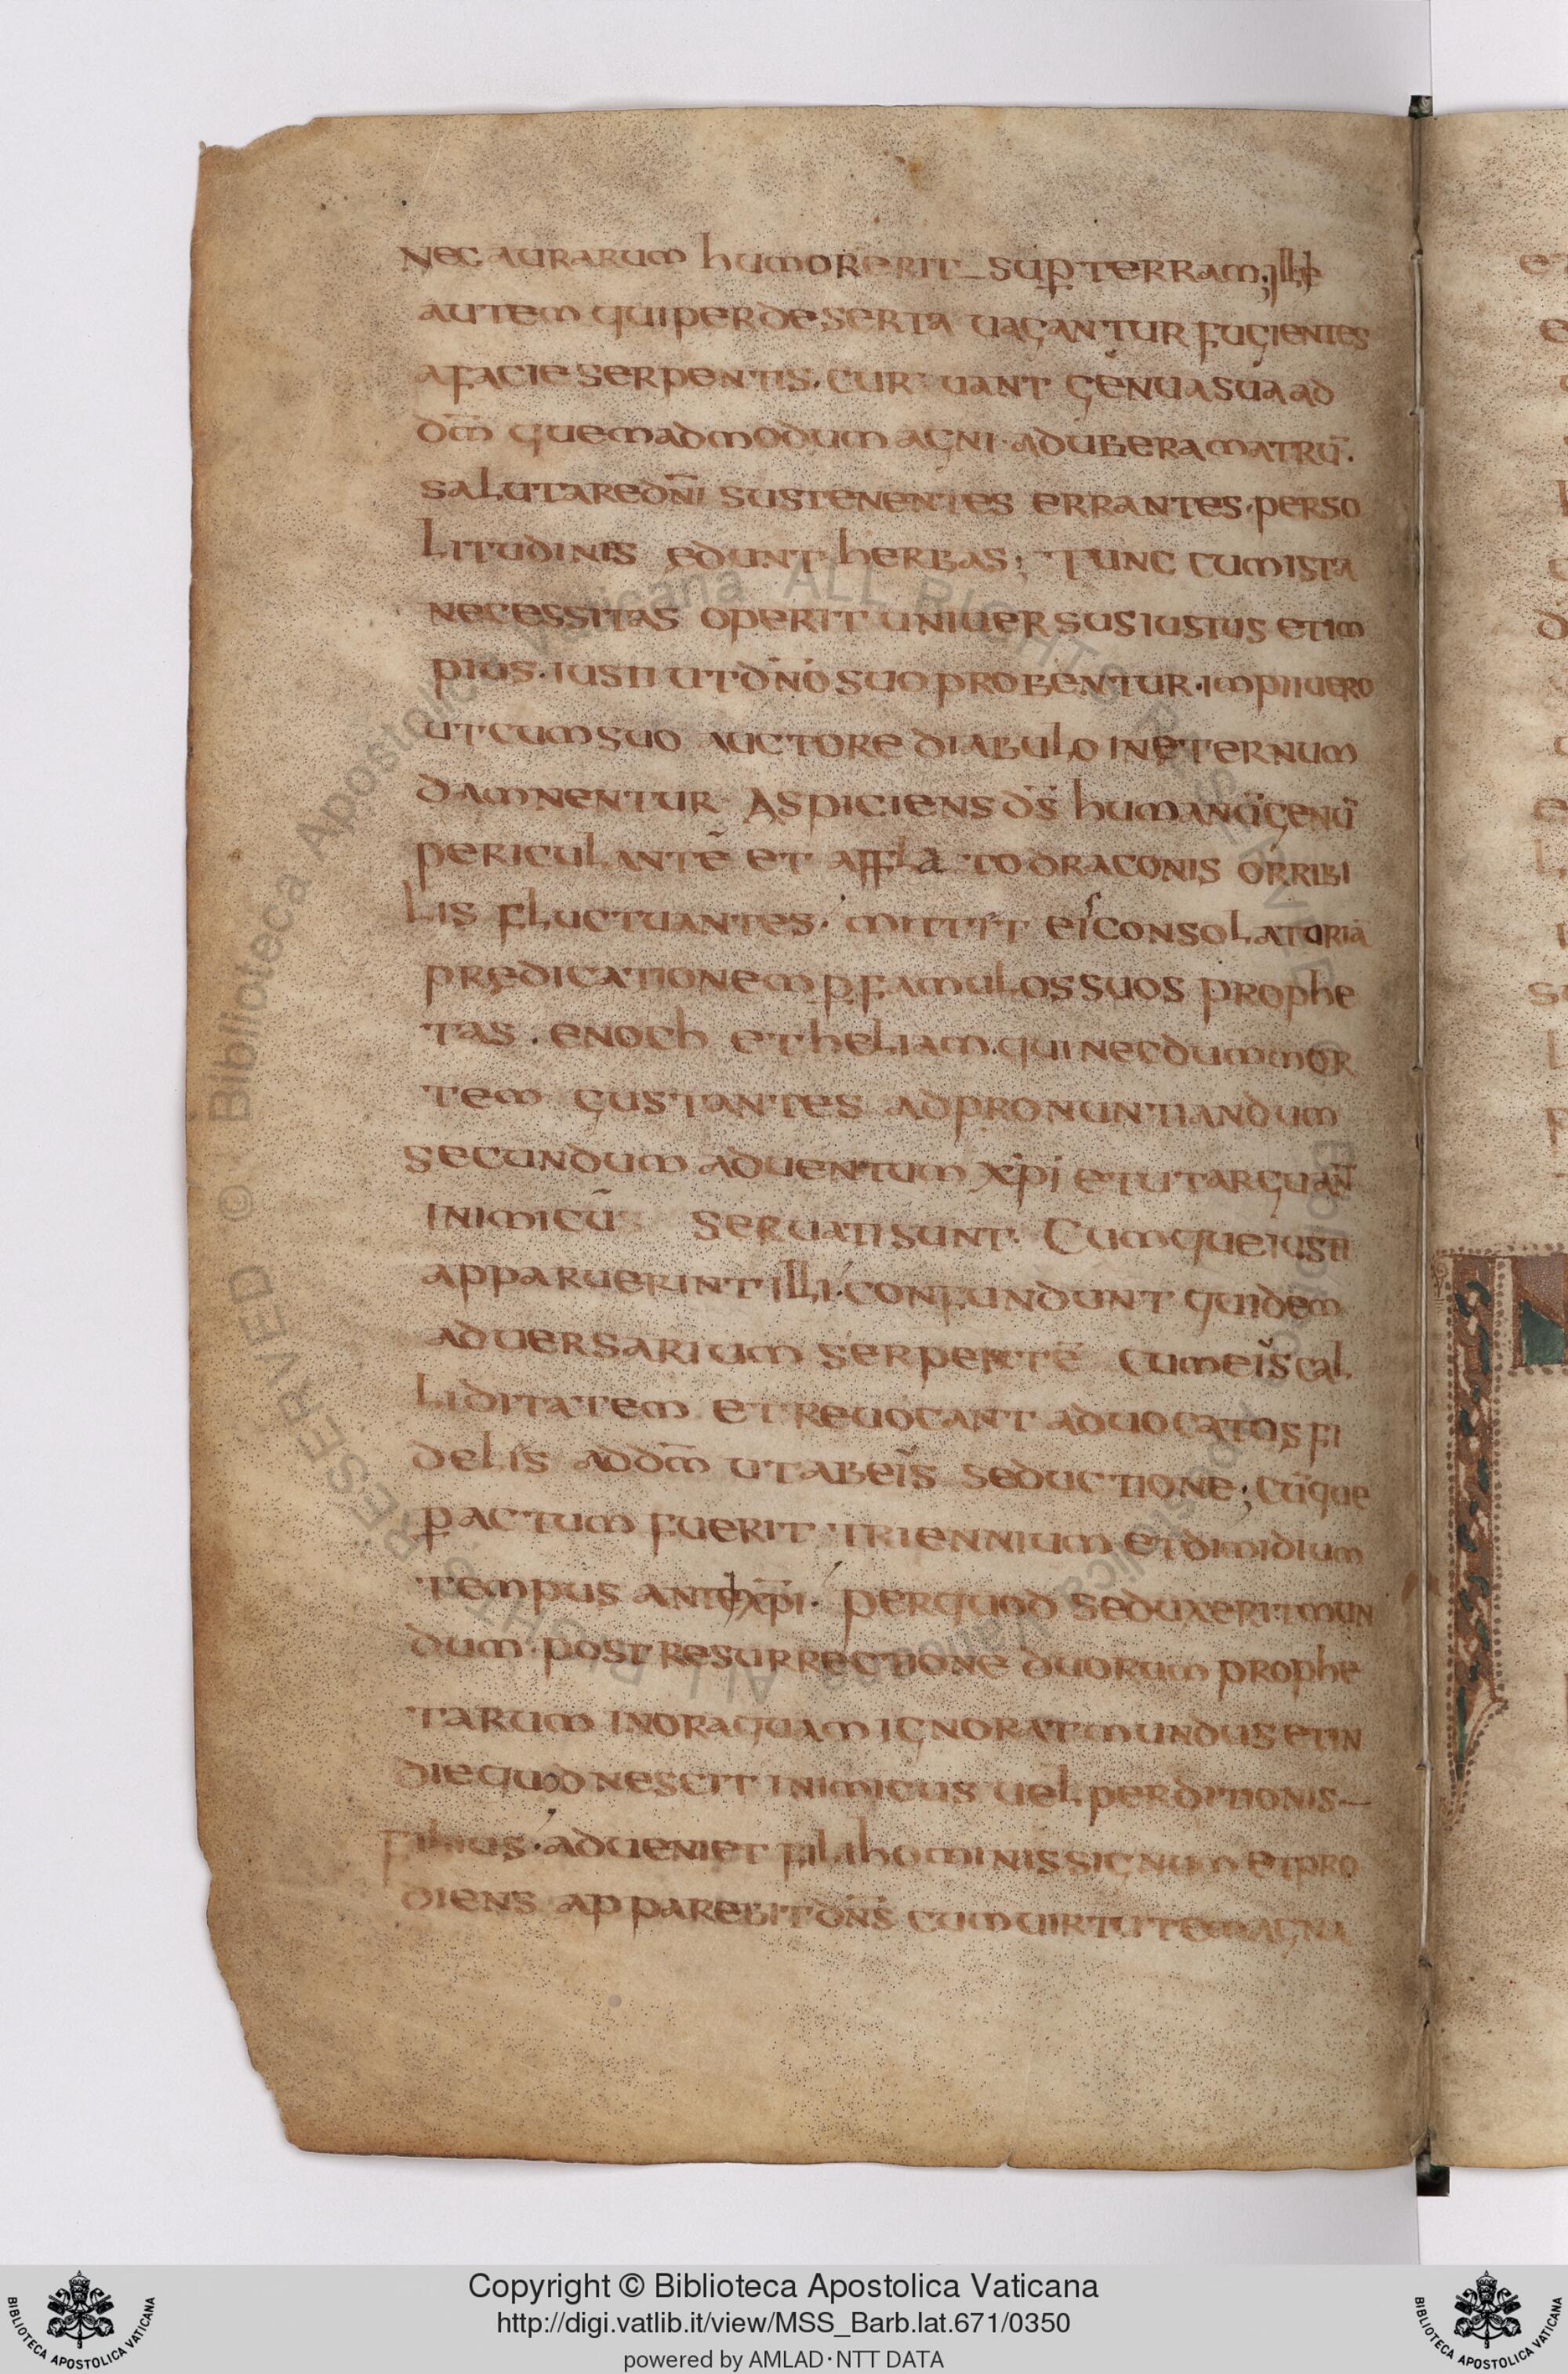 nec aurarum humor erit sup̱ terram; Ille
autem qui per deserta uagantur fugientes
a facie serpentis. curuant genua sua ad
dm̄ quemadmodum agni. ad ubera matrū.
salutare dn̄i sustenentes errantes. per so
litudinis edunt herbas; Tunc cum ista
necessitas operit uniuersus iustus et im
pius. iusti ut dn̄o suo probentur. impii uero
ut cum suo auctore diabulo in eternum
damnentur Aspiciens ds̄ humanū genū
periculantē et affla to draconis orribi
lis fluctuantes. mittit eis consolatoriā
predicationem p̱ famulos suos prophe
tas. enoch et heliam. qui necdum mor
tem gustantes ad pronuntiandum
secundum aduentum xp̄i et ut arguañ
inimicū seruati sunt. Cumque iusti
apparuerint illi. confundunt quidem
aduersarium serpentē cum eius cal
liditatem et reuocant aduocatos fi
delis ad dm̄ ut ab eius seductione; cūque
p̱actum fuerit triennium et dimidium
tempus antexp̄i. per quod seduxerit mun
dum. post resurrectione duorum prophe
tarum in ora quam ignorat mundus et in
die quod nescit inimicus uel perditionis
filius. adueniet fili hominis signum et pro
diens apparebit dn̄s cum uirtute magni
Copyright © Biblioteca Apostolica Vaticana
http://digi.vatlib.it/view/MSS_Barb.lat.671/0350
powered by AMLAD·NTT DATA